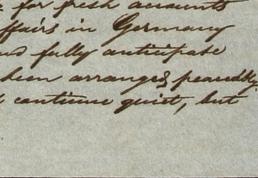 for fresh accounts
ffairs in Germany
and fully anticipate
been arranged peaceably.
continue quiet, but